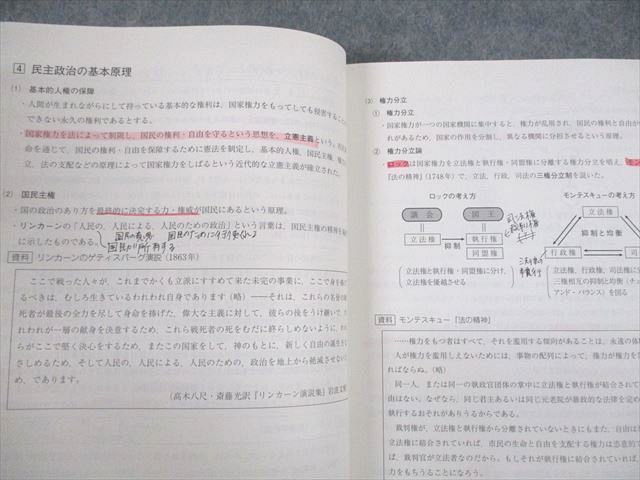 4 民主政治の基本原理
(1) 基本的人権の保障
・人間が生まれながらにして持っている基本的な権利は、国家権力をもってしても侵害するこ
できない永久の権利であるとする。
・国家権力を法によって制限し、国民の権利・自由を守るという思想を、立憲主義という。
命を通じて、国民の権利・自由を保障するために憲法を制定し、基本的人権、国民主権、権力
立、法の支配などの原理によって国家権力をしばるという近代的な立憲主義が確立された。
(2) 国民主権
・国の政治のあり方を最終的に決定する力・権威が国民にあるという原理。
・リンカーンの「人民の、人民による、人民のための政治」という言葉は、国民主権の精神を
に示したものである。
国民が所有する
資料 リンカーンのゲティスバーグ演説（1863年）
ここで戦った人々が、これまでかくも立派にすすめて来た未完の事業に、ここで身を
るべきは、むしろ生きているわれわれ自身であります（略）――それは、これらの名誉の
死者が最後の全力を尽して身命を捧げた、偉大な主義に対して、彼らの後をうけ継いで、
れわれが一層の献身を決意するため、これら戦死者の死をむだに終らしめないように、
らがここで堅く決心をするため、またこの国家をして、神のもとに、新しく自由の誕生を
さしめるため、そして人民の、人民による、人民のための、政治を地上から絶滅させない
め、であります。
（高木八尺・斎藤光訳『リンカーン演説集』岩波文庫
(3) 権力分立
① 権力分立
国家権力が一つの国家機関に集中すると、権力が乱用され、国民の権利と自由が
れがあるため、国家の作用を分割し、異なる機関に分担させるという原理。
② 権力分立論
ロックは国家権力を立法権と執行権・同盟権に分離する権力分立を唱え、モン
『法の精神』（1748年）で、立法、行政、司法の三権分立制を説いた。
ロックの考え方
議会
国王
立法権
抑制
執行権
同盟権
立法権と執行権・同盟権に分け、
立法権を優越させる
モンテスキューの考え
立法権
抑制と均衡
行政権
立法権、行政権、司法権に
三権相互の抑制と均衡（チェ
アンド・バランス）を図る
資料 モンテスキュー『法の精神』
……権力をもつ者はすべて、それを濫用する傾向があることは、永遠の体
人が権力を濫用しえないためには、事物の配列によって、権力が権力
ればならぬ。（略）
同一人、または同一の執政官団体の掌中に立法権と執行権が結合されて
由はない。なぜなら、同じ君主あるいは同じ元老院が暴政的な法律を定め
執行するおそれがありうるからである。
裁判権が、立法権と執行権から分離されていないときにもまた、自由は
立法権に結合されていれば、市民の生命と自由を支配する権力は恣意的
ば、裁判官が立法者なのだから。もしそれが執行権に結合されていれば、
力をもちうることになろう。